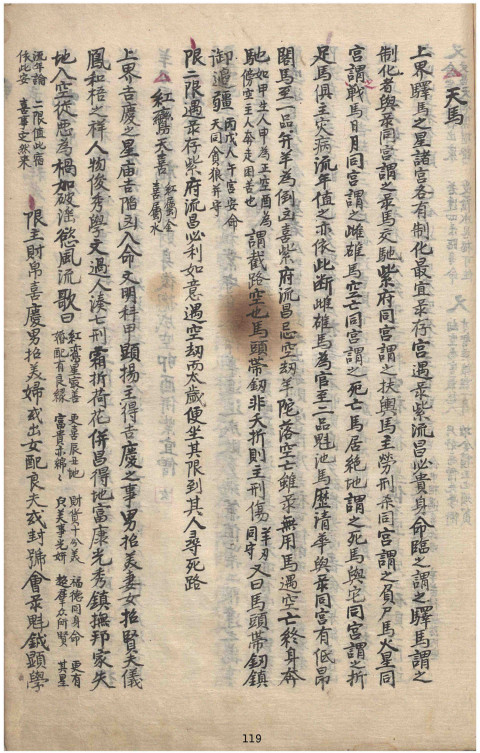 天馬
上界驛馬之星諸宮各有制化最宜录存宮遇录紫流昌必貴身命臨之謂之驛馬謂之
制化者與录同宮謂之录馬交馳紫府同宮謂之扶輿馬主勞刑杀同宮謂之負尸馬火星同
宮謂戰馬日月同宮謂之雌雄馬空亡同宮謂之死亡馬居絶地謂之死馬與宅同宮謂之折
足馬俱主灾病流年值之亦依此断雌雄馬為官至二品魁池馬歷清華與录同宮有低昂
閣馬至一品弁羊為倒喜紫府流昌忌空刼羊陀落空亡雖录無用馬遇空亡終身奔
馳如甲生人申為正空酉為傍空主人奔走困苦也謂截路空也馬頭帶釰非夭折則主刑傷羊刃同守又曰馬頭帶釰鎮
御邊疆丙戊人午宮安命天同貪狼并守
限二限遇录存紫府流昌必利如意遇空刼兩太歲便坐其限到其人尋死路
紅鸞天喜紅鸞金喜屬水
上界吉慶之星廟吉陷凶入命文明科甲顕揚主得吉慶之事男招美妻女招賢夫儀
鳳和梧之祥人物俊秀學文過人湊亡刑霜折荷花併昌得地富康光秀鎮撫邦家失
地入空從惡為禍加破滛慾風流歌曰紅鸞星最喜更喜辰丑地財貨十分美福德同身命更有
婚配有良緣富貴亦綿々只美事光妍超羣众所賢其星
流年論二限值此宿
依此安喜事必然來限主財帛喜慶男招美婦或出女配良夫或封號會录魁鉞顕學
119